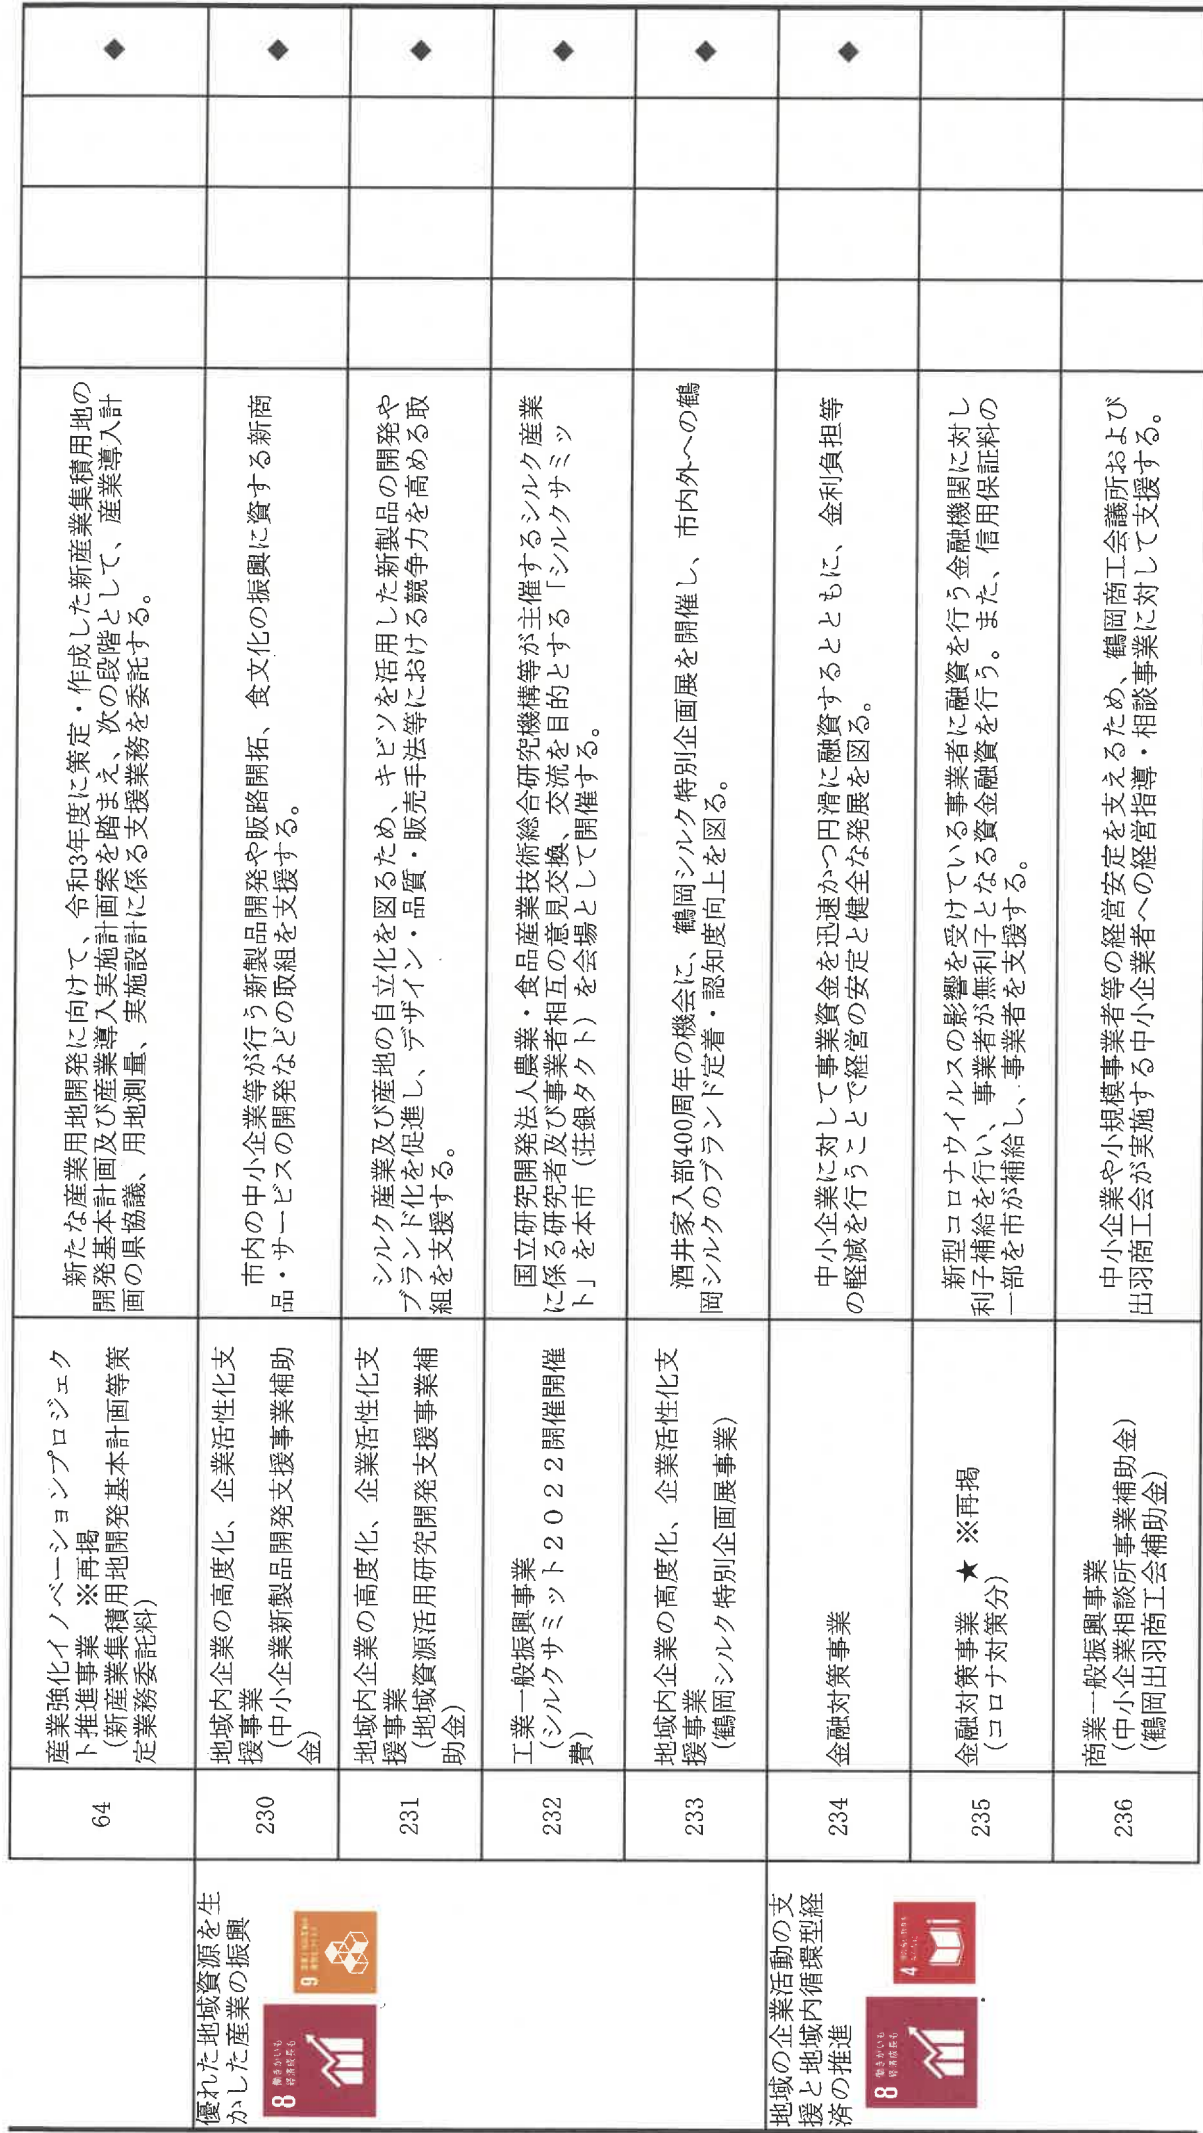 64
産業強化イノベーションプロジェク
ト推進事業　※再掲
(新産業集積用地開発基本計画等策
定業務委託料)
新たな産業用地開発に向けて、令和3年度に策定・作成した新産業集積用地の
開発基本計画及び産業導入実施計画案を踏まえ、次の段階として、産業導入計
画の県協議、用地測量、実施設計に係る支援業務を委託する。
◆
優れた地域資源を生
かした産業の振興
8 働きがいも
経済成長も
9
230
地域内企業の高度化、企業活性化支
援事業
(中小企業新製品開発支援事業補助
金)
市内の中小企業等が行う新製品開発や販路開拓、食文化の振興に資する新商
品・サービスの開発などの取組を支援する。
◆
231
地域内企業の高度化、企業活性化支
援事業
(地域資源活用研究開発支援事業補
助金)
シルク産業及び産地の自立化を図るため、キビソを活用した新製品の開発や
ブランド化を促進し、デザイン・品質・販売手法等における競争力を高める取
組を支援する。
◆
232
工業一般振興事業
(シルクサミット２０２２開催開催
費)
国立研究開発法人農業・食品産業技術総合研究機構等が主催するシルク産業
に係る研究者及び事業者相互の意見交換、交流を目的とする「シルクサミッ
ト」を本市（荘銀タクト）を会場として開催する。
◆
233
地域内企業の高度化、企業活性化支
援事業
(鶴岡シルク特別企画展事業)
酒井家入部400周年の機会に、鶴岡シルク特別企画展を開催し、市内外への鶴
岡シルクのブランド定着・認知度向上を図る。
◆
地域の企業活動の支
援と地域内循環型経
済の推進
8 働きがいも
経済成長も
4
234
金融対策事業
中小企業に対して事業資金を迅速かつ円滑に融資するとともに、金利負担等
の軽減を行うことで経営の安定と健全な発展を図る。
◆
235
金融対策事業　★ ※再掲
(コロナ対策分)
新型コロナウイルスの影響を受けている事業者に融資を行う金融機関に対し
利子補給を行い、事業者が無利子となる資金融資を行う。また、信用保証料の
一部を市が補給し、事業者を支援する。
236
商業一般振興事業
(中小企業相談所事業補助金)
(鶴岡出羽商工会補助金)
中小企業や小規模事業者等の経営安定を支えるため、鶴岡商工会議所および
出羽商工会が実施する中小企業者への経営指導・相談事業に対して支援する。